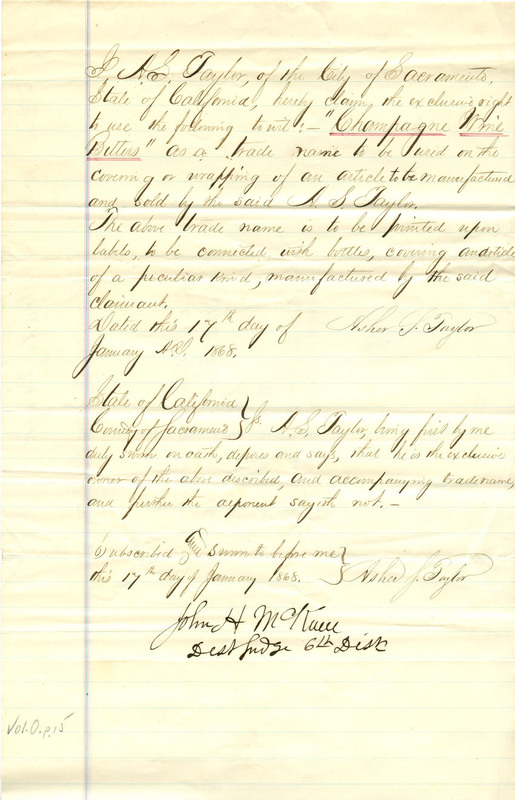 I, A. S. Taylor, of the City of Sacramento,
State of California, hereby claim the exclusive right
to use the following to wit:— "Champagne Wine
Bitters" as a trade name to be used on the
covering or wrapping of an article to be manufactured
and sold by the said A. S. Taylor.
The above trade name is to be printed upon
labels, to be connected with bottles, covering an article
of a peculiar kind, manufactured by the said
claimant.
Dated this 17th day of Asher S. Taylor
January A.D. 1868.
State of California }
County of Sacramento } ss. A. S. Taylor, being first by me
duly sworn on oath, deposes and says, that he is the exclusive
owner of the above described, and accompanying trade name,
and further the deponent sayeth not.—
Subscribed and sworn to before me }
this 17th day of January 1868. } Asher S. Taylor
John H McKune
Dist Judge 6th Dist
Vol. O. p. 15